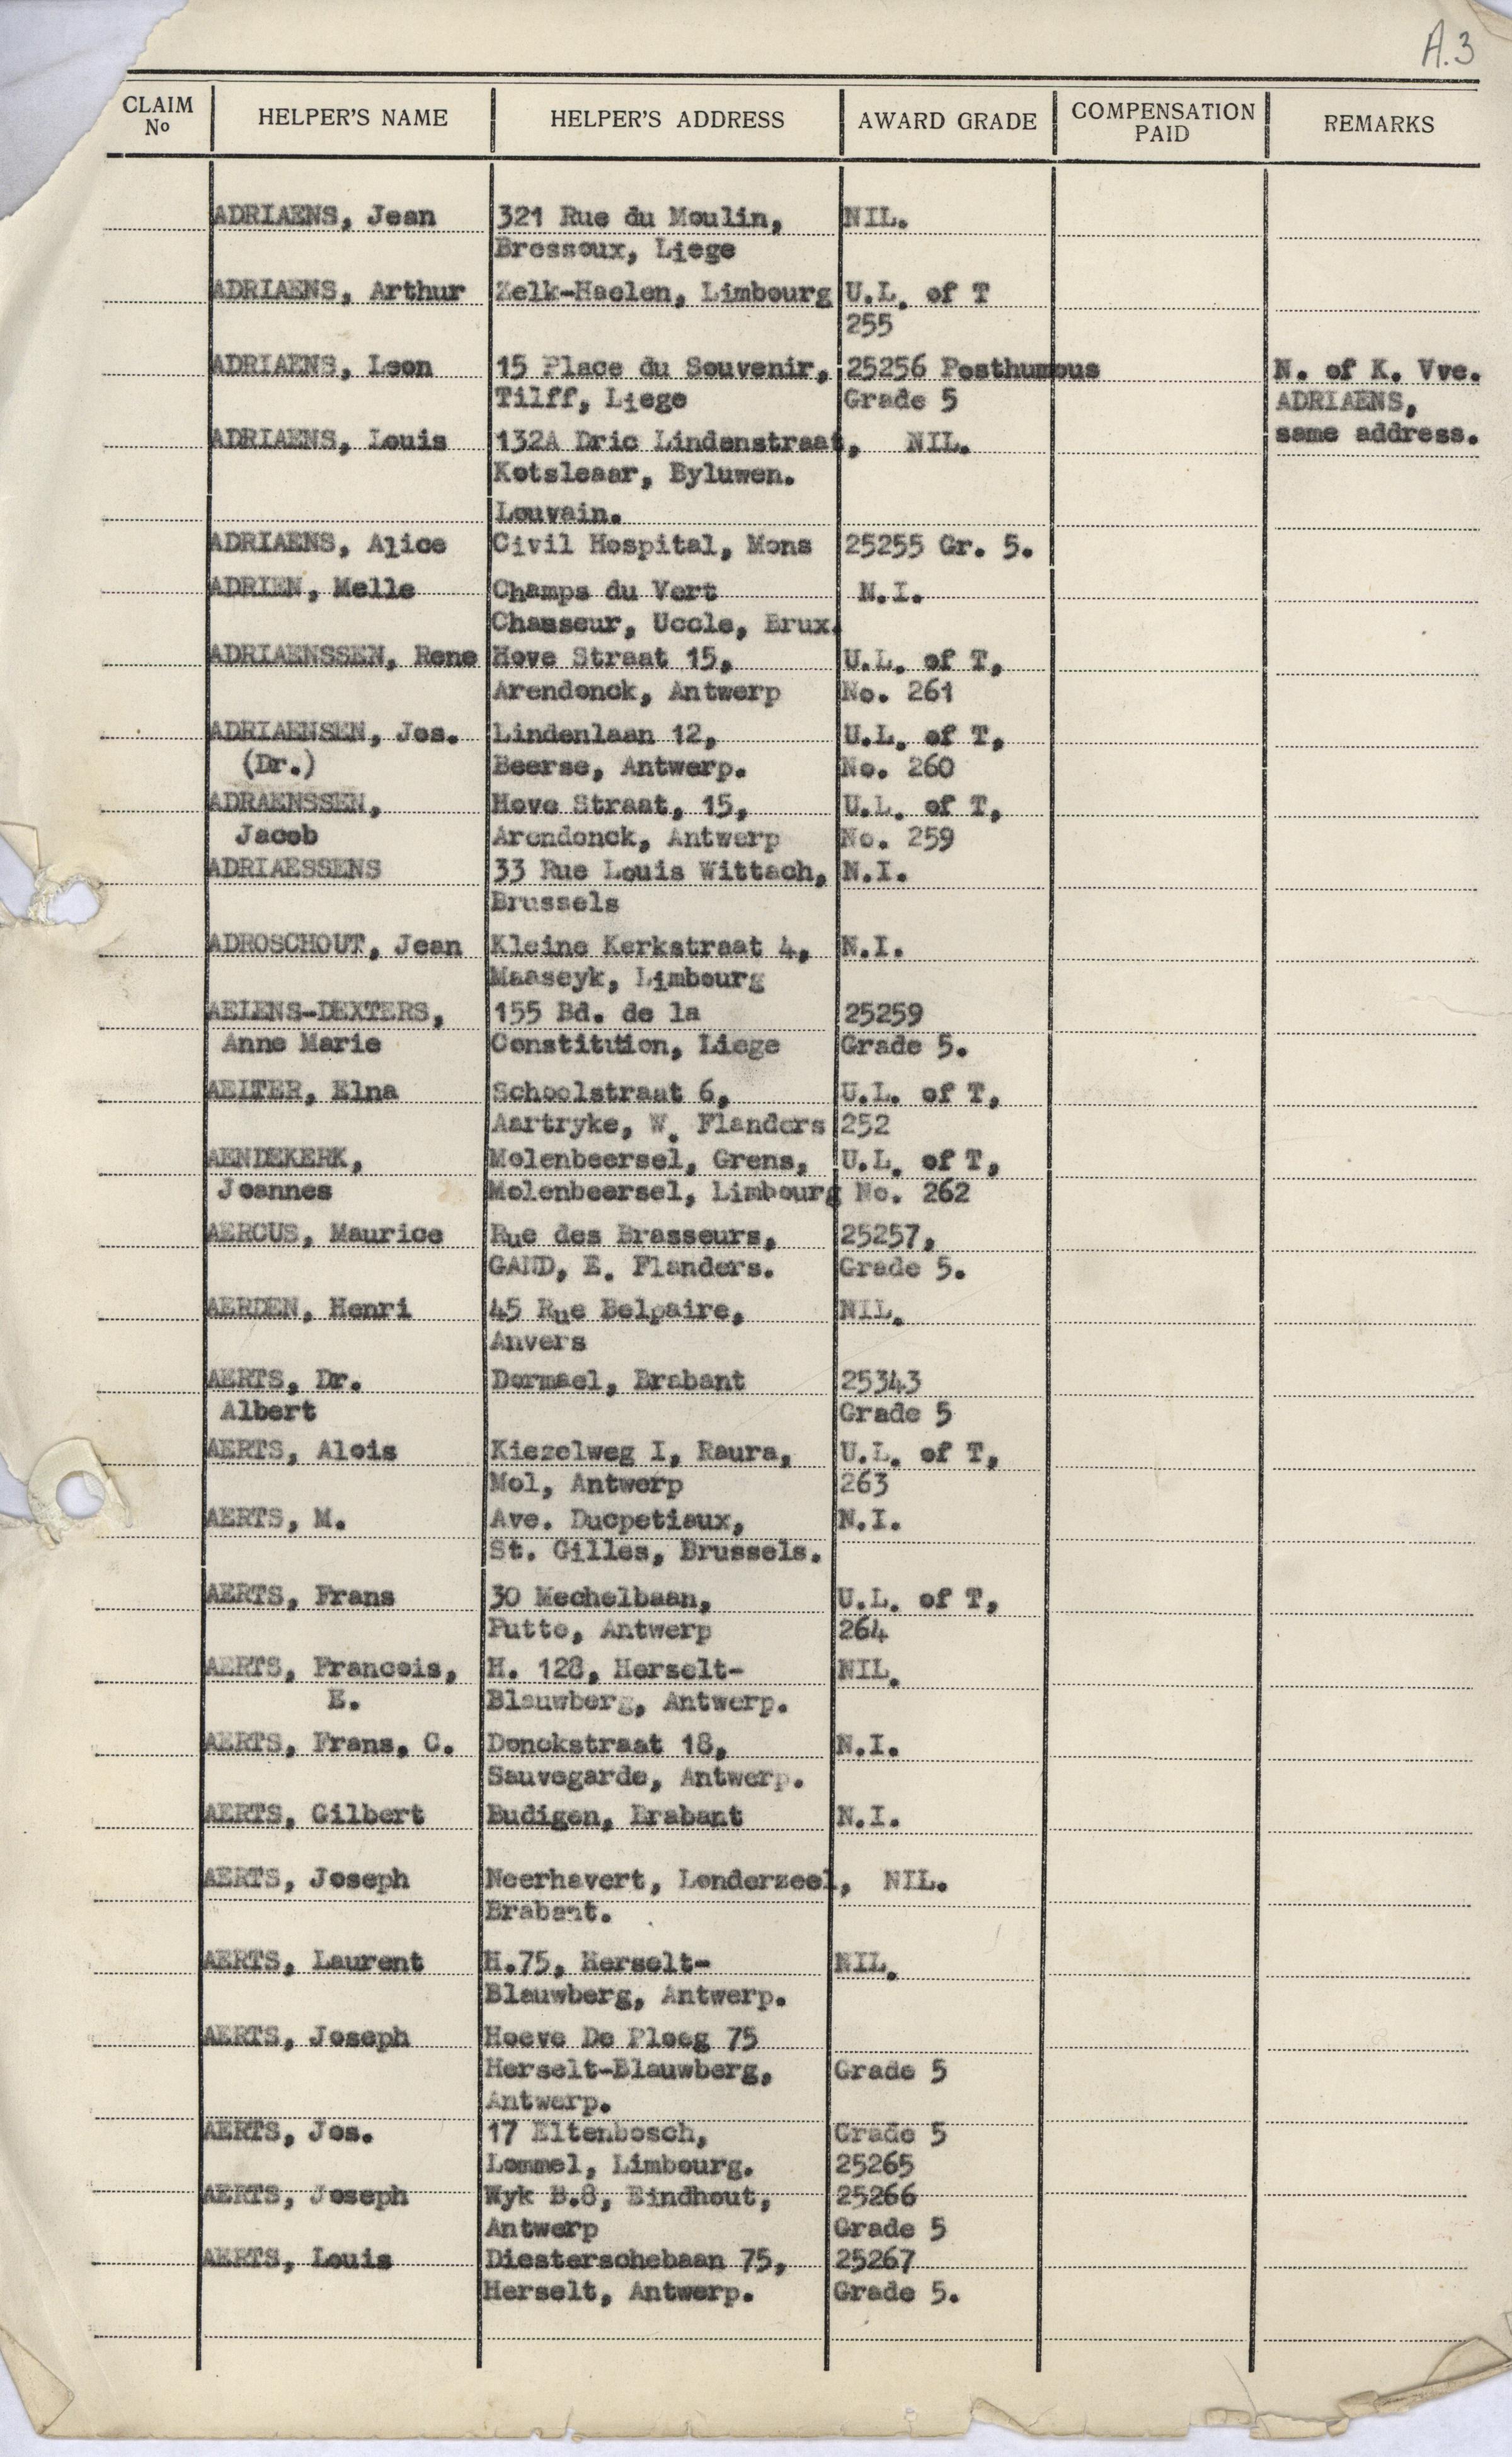 A.3
CLAIM No HELPER'S NAME HELPER'S ADDRESS AWARD GRADE COMPENSATION PAID REMARKS
ADRIAENS, Jean 321 Rue du Moulin, NIL.
Bressoux, Liege
ADRIAENS, Arthur Zelk-Haelen, Limbourg U.L. of T
255
ADRIAENS, Leon 15 Place du Souvenir, 25256 Posthumous N. of K. Vve.
Tilff, Liege Grade 5 ADRIAENS,
ADRIAENS, Louis 132A Dric Lindenstraat, NIL. same address.
Kotsleaar, Byluwen.
Louvain.
ADRIAENS, Alice Civil Hospital, Mons 25255 Gr. 5.
ADRIEN, Melle Champs du Vert N.I.
Chasseur, Uccle, Brux.
ADRIAENSSEN, Rene Hove Straat 15, U.L. of T,
Arendonck, Antwerp No. 261
ADRIAENSEN, Jos. Lindenlaan 12, U.L. of T,
(Dr.) Beerse, Antwerp. No. 260
ADRAENSSEN, Hove Straat, 15, U.L. of T,
Jacob Arendonck, Antwerp No. 259
ADRIAESSENS 33 Rue Louis Wittach, N.I.
Brussels
ADROSCHOUT, Jean Kleine Kerkstraat 4, N.I.
Maaseyk, Limbourg
AEIENS-DEXTERS, 155 Bd. de la 25259
Anne Marie Constitution, Liege Grade 5.
AEITER, Elna Schoolstraat 6, U.L. of T,
Aartryke, W. Flanders 252
AENDEKERK, Molenbeersel, Grens, U.L. of T,
Joannes Molenbeersel, Limbourg No. 262
AERCUS, Maurice Rue des Brasseurs, 25257,
GAND, E. Flanders. Grade 5.
AERDEN, Henri 45 Rue Belpaire, NIL.
Anvers
AERTS, Dr. Dormael, Brabant 25343
Albert Grade 5
AERTS, Alois Kiezelweg I, Raura, U.L. of T,
Mol, Antwerp 263
AERTS, M. Ave. Ducpetiaux, N.I.
St. Gilles, Brussels.
AERTS, Frans 30 Mechelbaan, U.L. of T,
Putte, Antwerp 264
AERTS, Francois, H. 128, Herselt- NIL.
E. Blauwberg, Antwerp.
AERTS, Frans, C. Donckstraat 18, N.I.
Sauvegarde, Antwerp.
AERTS, Gilbert Budigen, Brabant N.I.
AERTS, Joseph Neerhavert, Londerzeel, NIL.
Brabant.
AERTS, Laurent H.75, Herselt- NIL.
Blauwberg, Antwerp.
AERTS, Joseph Hoeve De Ploeg 75
Herselt-Blauwberg, Grade 5
Antwerp.
AERTS, Jos. 17 Eltenbosch, Grade 5
Lommel, Limbourg. 25265
AERTS, Joseph Wyk B.8, Eindhout, 25266
Antwerp Grade 5
AERTS, Louis Diesterschebaan 75, 25267
Herselt, Antwerp. Grade 5.